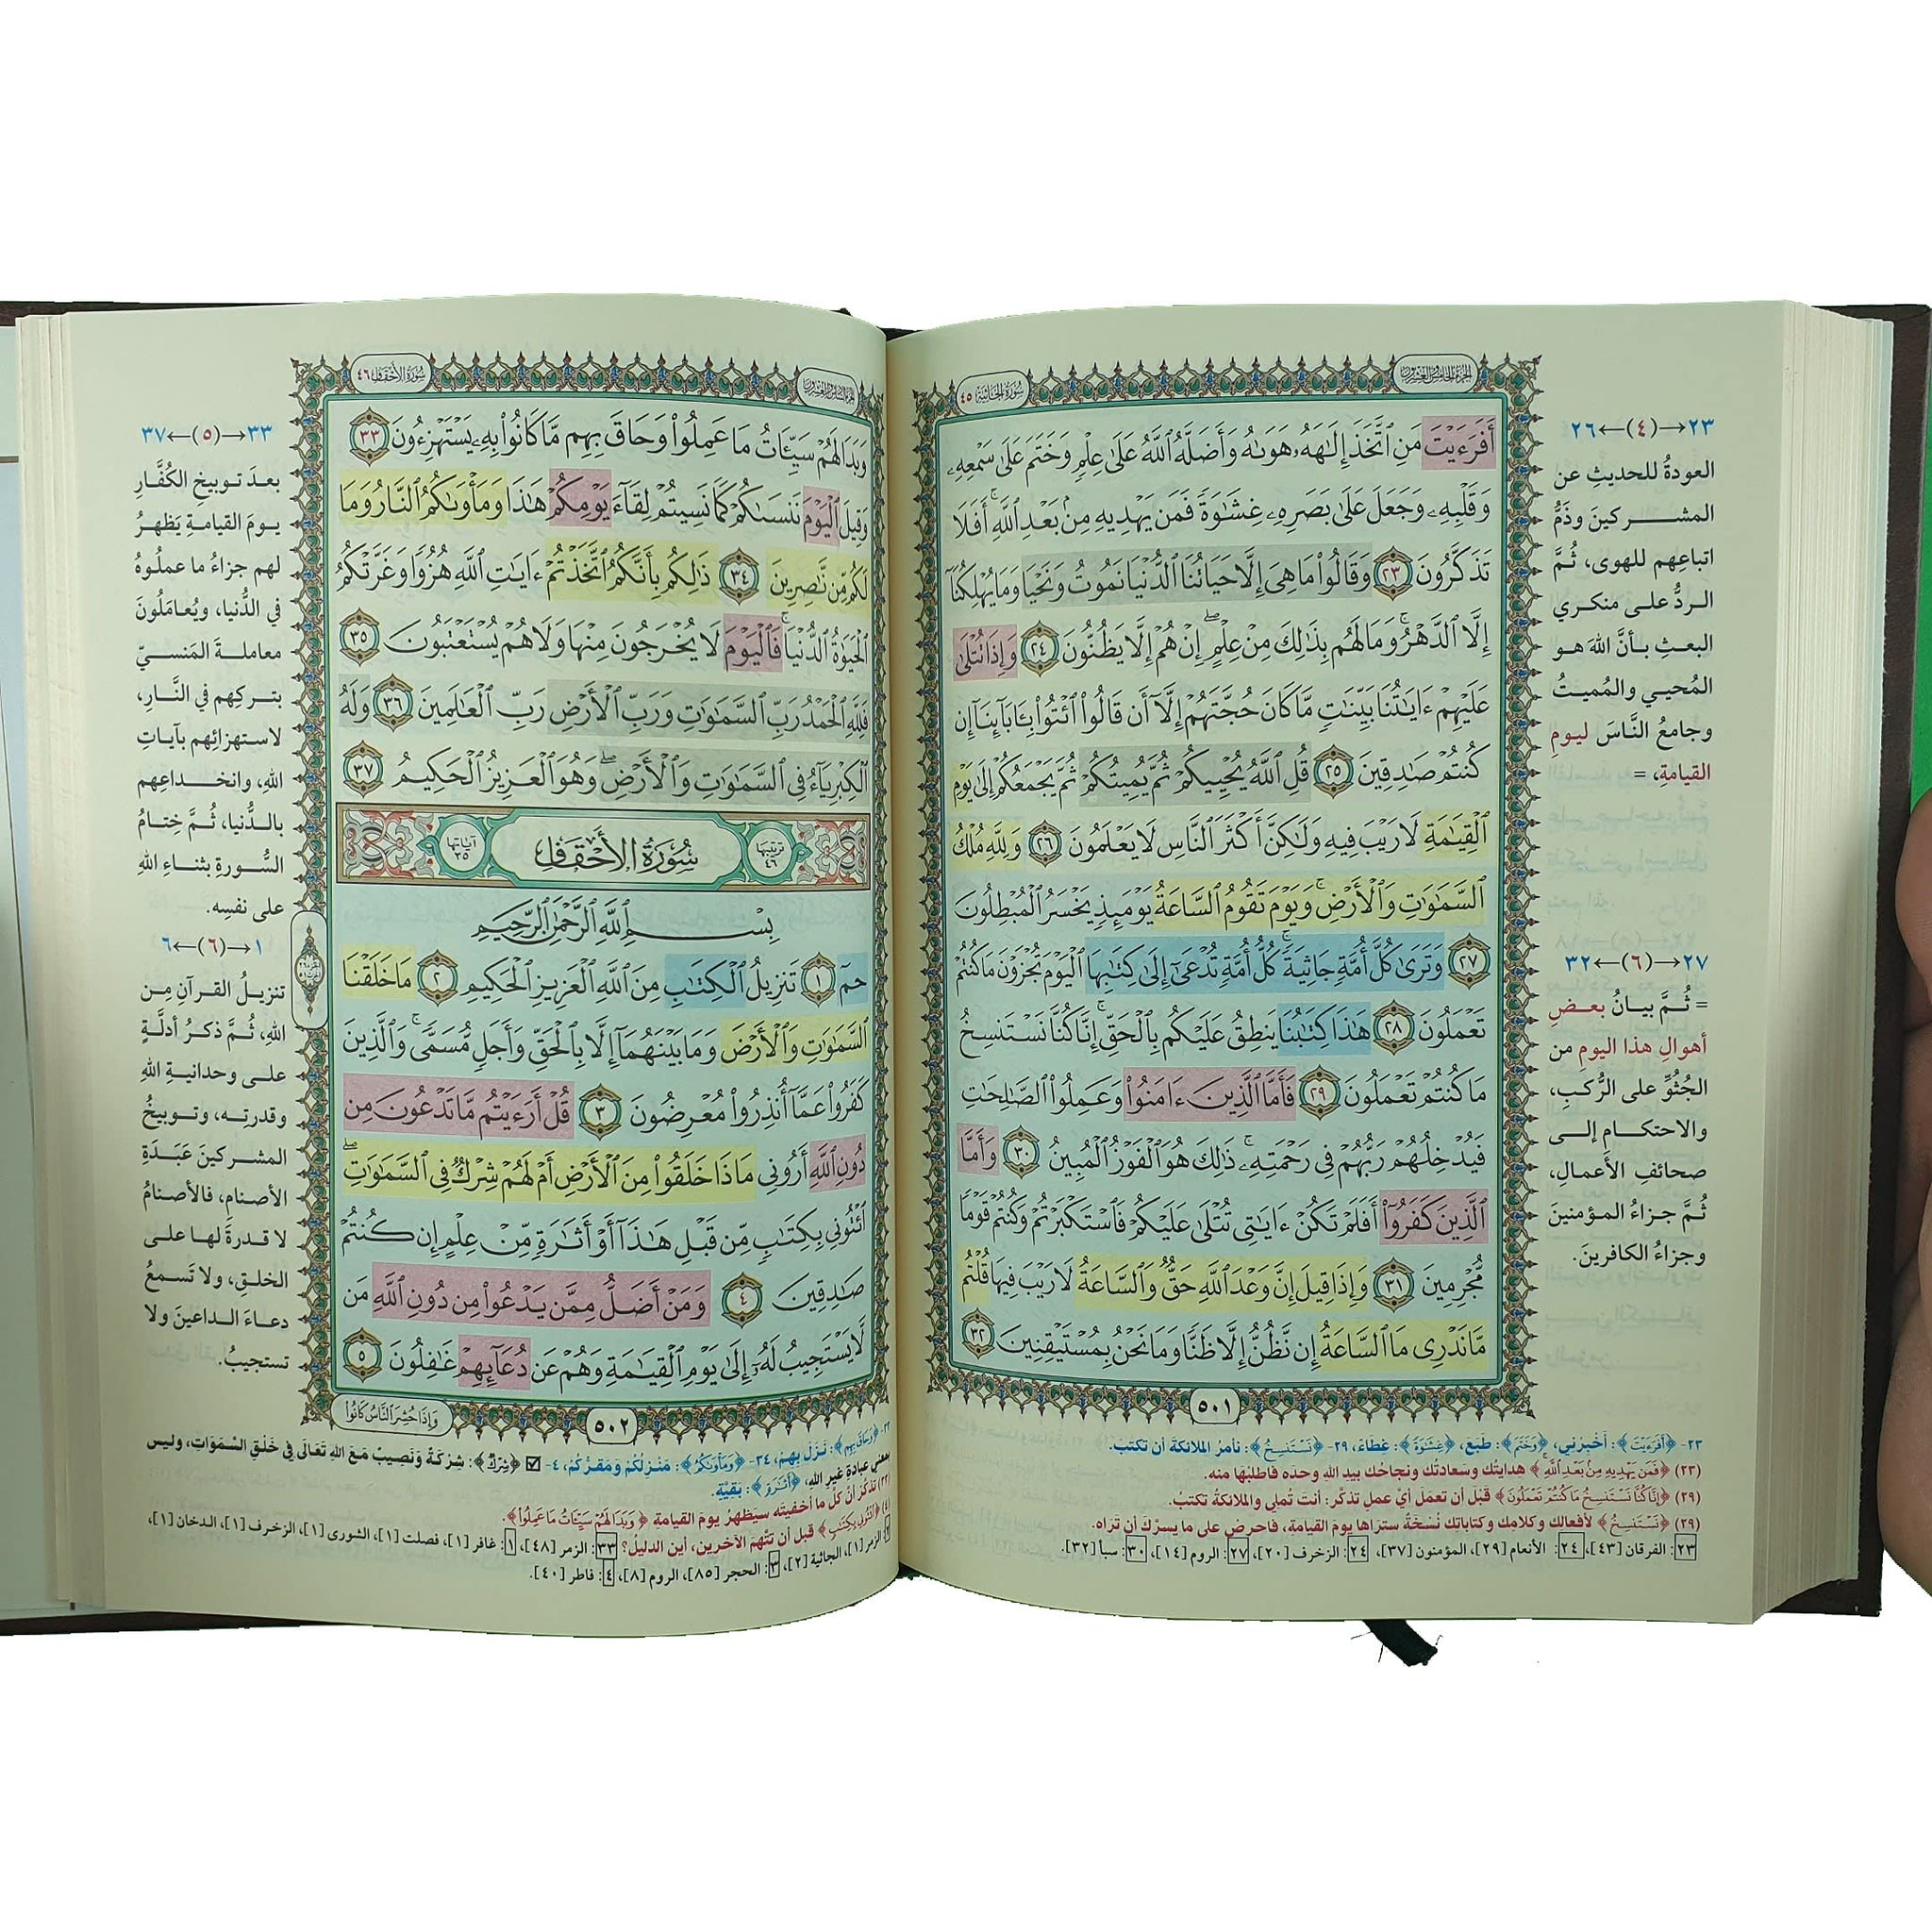 الجزء الخامس والعشرون
سورة الجاثية ٤٥
أَفَرَءَيْتَ مَنِ ٱتَّخَذَ إِلَٰهَهُۥ هَوَىٰهُ وَأَضَلَّهُ ٱللَّهُ عَلَىٰ عِلْمٍ وَخَتَمَ عَلَىٰ سَمْعِهِۦ
وَقَلْبِهِۦ وَجَعَلَ عَلَىٰ بَصَرِهِۦ غِشَٰوَةً فَمَن يَهْدِيهِ مِنۢ بَعْدِ ٱللَّهِ ۚ أَفَلَا
تَذَكَّرُونَ ٢٣ وَقَالُوا۟ مَا هِىَ إِلَّا حَيَاتُنَا ٱلدُّنْيَا نَمُوتُ وَنَحْيَا وَمَا يُهْلِكُنَآ
إِلَّا ٱلدَّهْرُ ۚ وَمَا لَهُم بِذَٰلِكَ مِنْ عِلْمٍ ۖ إِنْ هُمْ إِلَّا يَظُنُّونَ ٢٤ وَإِذَا تُتْلَىٰ
عَلَيْهِمْ ءَايَٰتُنَا بَيِّنَٰتٍ مَّا كَانَ حُجَّتَهُمْ إِلَّآ أَن قَالُوا۟ ٱئْتُوا۟ بِـَٔابَآئِنَآ إِن
كُنتُمْ صَٰدِقِينَ ٢٥ قُلِ ٱللَّهُ يُحْيِيكُمْ ثُمَّ يُمِيتُكُمْ ثُمَّ يَجْمَعُكُمْ إِلَىٰ يَوْمِ
ٱلْقِيَٰمَةِ لَا رَيْبَ فِيهِ وَلَٰكِنَّ أَكْثَرَ ٱلنَّاسِ لَا يَعْلَمُونَ ٢٦ وَلِلَّهِ مُلْكُ
ٱلسَّمَٰوَٰتِ وَٱلْأَرْضِ ۚ وَيَوْمَ تَقُومُ ٱلسَّاعَةُ يَوْمَئِذٍ يَخْسَرُ ٱلْمُبْطِلُونَ
٢٧ وَتَرَىٰ كُلَّ أُمَّةٍ جَاثِيَةً ۚ كُلُّ أُمَّةٍ تُدْعَىٰٓ إِلَىٰ كِتَٰبِهَا ٱلْيَوْمَ تُجْزَوْنَ مَا كُنتُمْ
تَعْمَلُونَ ٢٨ هَٰذَا كِتَٰبُنَا يَنطِقُ عَلَيْكُم بِٱلْحَقِّ ۚ إِنَّا كُنَّا نَسْتَنسِخُ
مَا كُنتُمْ تَعْمَلُونَ ٢٩ فَأَمَّا ٱلَّذِينَ ءَامَنُوا۟ وَعَمِلُوا۟ ٱلصَّٰلِحَٰتِ
فَيُدْخِلُهُمْ رَبُّهُمْ فِى رَحْمَتِهِۦ ۚ ذَٰلِكَ هُوَ ٱلْفَوْزُ ٱلْمُبِينُ ٣٠ وَأَمَّا
ٱلَّذِينَ كَفَرُوٓا۟ أَفَلَمْ تَكُنْ ءَايَٰتِى تُتْلَىٰ عَلَيْكُمْ فَٱسْتَكْبَرْتُمْ وَكُنتُمْ قَوْمًا
مُّجْرِمِينَ ٣١ وَإِذَا قِيلَ إِنَّ وَعْدَ ٱللَّهِ حَقٌّ وَٱلسَّاعَةُ لَا رَيْبَ فِيهَا قُلْتُم
مَّا نَدْرِى مَا ٱلسَّاعَةُ إِن نَّظُنُّ إِلَّا ظَنًّا وَمَا نَحْنُ بِمُسْتَيْقِنِينَ ٣٢
٥٠١
٢٣→(٤)←٢٦
العودةُ للحديثِ عن
المشركينَ وذَمُّ
اتباعِهم للهوى، ثُمَّ
الردُّ على منكري
البعثِ بأنَّ اللهَ هو
المُحيي والمُميتُ
وجامعُ النَّاسَ ليومِ
القيامةِ، =
٢٧→(٦)←٣٢
= ثُمَّ بيانُ بعضِ
أهوالِ هذا اليومِ من
الجُثُوِّ على الرُّكبِ،
والاحتكامِ إلى
صحائفِ الأعمالِ،
ثُمَّ جزاءُ المؤمنينَ
وجزاءُ الكافرينَ.
٢٣- ﴿أَفَرَءَيْتَ﴾: أَخْبِرْنِي، ﴿وَخَتَمَ﴾: طَبَعَ، ﴿غِشَٰوَةً﴾: غِطَاءً، ٢٩- ﴿نَسْتَنسِخُ﴾: نأمرُ الملائكةَ أن تكتبَ.
(٢٣) ﴿فَمَن يَهْدِيهِ مِنۢ بَعْدِ ٱللَّهِ﴾ هدايتُك وسَعادتُك ونجاحُك بيدِ اللهِ وحدَه فاطلبْها منه.
(٢٩) ﴿إِنَّا كُنَّا نَسْتَنسِخُ مَا كُنتُمْ تَعْمَلُونَ﴾ قبلَ أن تعملَ أيَّ عملٍ تذكَّر: أنتَ تُملي والملائكةُ تكتبُ.
(٢٩) ﴿نَسْتَنسِخُ﴾ لأفعالِك وكلامِك وكتاباتِك نُسْخَةٌ ستراها يومَ القيامةِ، فاحرص على ما يسرُّكَ أن تَرَاه.
٢٣: الفرقان [٤٣]، ٢٤: الأنعام [٢٩]، المؤمنون [٣٧]، ٢٤: الزخرف [٢٠]، ٢٧: الروم [١٤]، ٣٠: سبأ [٣٢].
الجزء السادس والعشرون
سورة الأحقاف ٤٦
وَبَدَا لَهُمْ سَيِّـَٔاتُ مَا عَمِلُوا۟ وَحَاقَ بِهِم مَّا كَانُوا۟ بِهِۦ يَسْتَهْزِءُونَ ٣٣
وَقِيلَ ٱلْيَوْمَ نَنسَىٰكُمْ كَمَا نَسِيتُمْ لِقَآءَ يَوْمِكُمْ هَٰذَا وَمَأْوَىٰكُمُ ٱلنَّارُ وَمَا
لَكُم مِّن نَّٰصِرِينَ ٣٤ ذَٰلِكُم بِأَنَّكُمُ ٱتَّخَذْتُمْ ءَايَٰتِ ٱللَّهِ هُزُوًا وَغَرَّتْكُمُ
ٱلْحَيَوٰةُ ٱلدُّنْيَا ۚ فَٱلْيَوْمَ لَا يُخْرَجُونَ مِنْهَا وَلَا هُمْ يُسْتَعْتَبُونَ ٣٥
فَلِلَّهِ ٱلْحَمْدُ رَبِّ ٱلسَّمَٰوَٰتِ وَرَبِّ ٱلْأَرْضِ رَبِّ ٱلْعَٰلَمِينَ ٣٦ وَلَهُ
ٱلْكِبْرِيَآءُ فِى ٱلسَّمَٰوَٰتِ وَٱلْأَرْضِ ۖ وَهُوَ ٱلْعَزِيزُ ٱلْحَكِيمُ ٣٧
ترتيبها ٤٦ سُورَةُ الأَحْقَافِ آياتها ٣٥
بِسْمِ ٱللَّهِ ٱلرَّحْمَٰنِ ٱلرَّحِيمِ
حمٓ ١ تَنزِيلُ ٱلْكِتَٰبِ مِنَ ٱللَّهِ ٱلْعَزِيزِ ٱلْحَكِيمِ ٢ مَا خَلَقْنَا
ٱلسَّمَٰوَٰتِ وَٱلْأَرْضَ وَمَا بَيْنَهُمَآ إِلَّا بِٱلْحَقِّ وَأَجَلٍ مُّسَمًّى ۚ وَٱلَّذِينَ
كَفَرُوا۟ عَمَّآ أُنذِرُوا۟ مُعْرِضُونَ ٣ قُلْ أَرَءَيْتُم مَّا تَدْعُونَ مِن
دُونِ ٱللَّهِ أَرُونِى مَاذَا خَلَقُوا۟ مِنَ ٱلْأَرْضِ أَمْ لَهُمْ شِرْكٌ فِى ٱلسَّمَٰوَٰتِ ۖ
ٱئْتُونِى بِكِتَٰبٍ مِّن قَبْلِ هَٰذَآ أَوْ أَثَٰرَةٍ مِّنْ عِلْمٍ إِن كُنتُمْ
صَٰدِقِينَ ٤ وَمَنْ أَضَلُّ مِمَّن يَدْعُوا۟ مِن دُونِ ٱللَّهِ مَن
لَّا يَسْتَجِيبُ لَهُۥٓ إِلَىٰ يَوْمِ ٱلْقِيَٰمَةِ وَهُمْ عَن دُعَآئِهِمْ غَٰفِلُونَ ٥
٥٠٢
وَإِذَا حُشِرَ ٱلنَّاسُ كَانُوا۟
٣٣→(٥)←٣٧
بعدَ توبيخِ الكُفَّارِ
يومَ القيامةِ يَظهرُ
لهم جزاءُ ما عملُوهُ
في الدُّنيا، ويُعامَلُونَ
معاملةَ المَنسيِّ
بتركِهم في النَّارِ،
لاستهزائِهم بآياتِ
اللهِ، وانخداعِهم
بالدُّنيا، ثُمَّ خِتامُ
السُّورةِ بثناءِ اللهِ
على نفسِه.
١→(٦)←٦
تنزيلُ القرآنِ مِن
اللهِ، ثُمَّ ذكرُ أدلَّةٍ
على وحدانيةِ اللهِ
وقدرتِه، وتوبيخُ
المشركينَ عَبَدَةِ
الأصنامِ، فالأصنامُ
لا قدرةَ لها على
الخلقِ، ولا تَسمعُ
دعاءَ الداعينَ ولا
تستجيبُ.
٣٣- ﴿وَحَاقَ بِهِم﴾: نَزَلَ بِهِمْ، ٣٤- ﴿وَمَأْوَىٰكُمُ﴾: مَنْزِلُكُمْ وَمَقَرُّكُمْ، ٤- ﴿شِرْكٌ﴾: شِرْكَةٌ وَنَصِيبٌ مَعَ اللهِ تَعَالَى فِي خَلْقِ السَّمَوَاتِ، وليس
بمعنى عبادةِ غيرِ اللهِ، ﴿أَثَٰرَةٍ﴾: بَقِيَّةٍ.
(٣٣) تذكَّرْ أنَّ كلَّ ما أخفيتَه سيَظهرُ يومَ القيامةِ ﴿وَبَدَا لَهُمْ سَيِّـَٔاتُ مَا عَمِلُوا۟﴾.
(٤) ﴿ٱئْتُونِى بِكِتَٰبٍ﴾ قبلَ أن تتَّهمَ الآخرين، أين الدليلُ؟ ٣٣: الزمر [٤٨]، ١: غافر [١]، فصلت [١]، الشورى [١]، الزخرف [١]، الدخان [١]،
٢: الزمر [١]، الجاثية [٢]، ٣: الحجر [٨٥]، الروم [٨]، ٤: فاطر [٤٠].